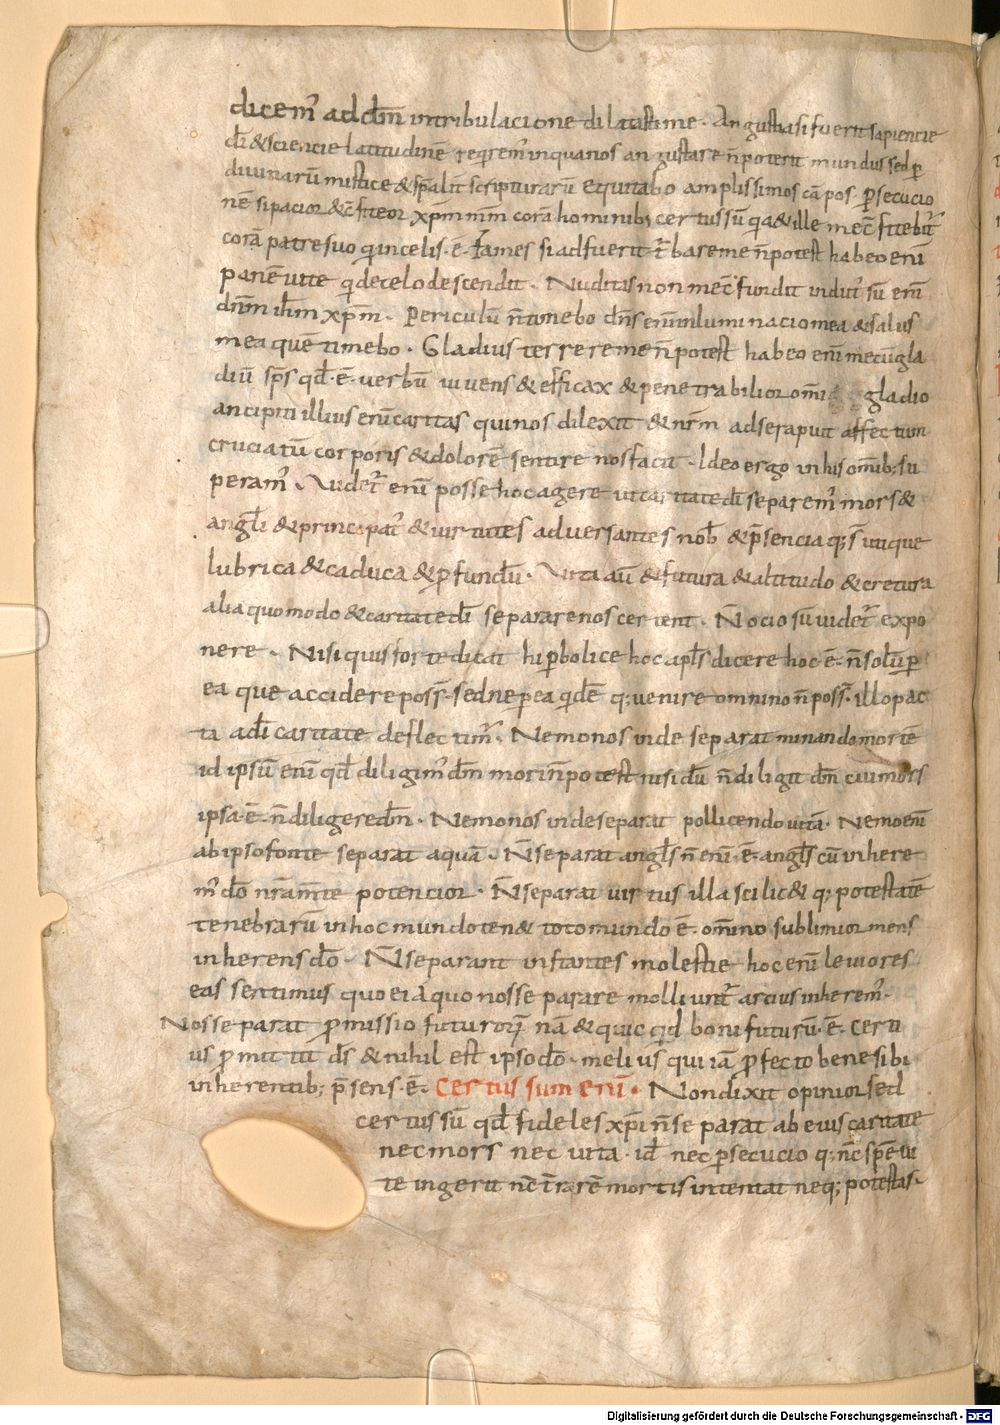 dicem᷒ ad dm̄ intribulacione dilatasti me. Angustia si fuerit sapiencie
dī & sciencie latitudinē req̄rem᷒ in qua nos angustare n̄ poterit mundus sed ꝑ
divinarū mistice & sp̄alit̄ scripturarū equitabo amplissimos cāpos. Persecucio
nē si pacior & c̄fiteor xp̄m m̄m corā hominib; certus sū q̄a & ille me c̄fitebit᷒
corā patre suo q̄ in celis .ē. Fames si adfuerit t᷒bare me n̄ potest habeo enī
panē vite q̄ de celo descendit. Nuditas non me c̄fundit indut᷒ sū enī
dn̄m ih̄m xp̄m. Periculū n̄ timebo dn̄s enī inluminacio mea & salus
mea quē timebo. Gladius terrere me n̄ potest habeo enī mecū gla
diū sp̄s qd̄ .ē. verbū vivens & efficax & penetrabilior omī gladio
ancipiti illius enī caritas qui nos dilexit & nr̄m ad se rapuit affectum
cruciatū corporis & dolorē sentire nos facit. Ideo ergo in his omīb; su
peram᷒. Videt᷒ enī posse hoc agere ut caritate dī separem᷒ mors &
angl̄i & principat᷒ & virtutes adversantes nob̄ & p̄sencia q; s̄ utique
lubrica & caduca & ꝓfundū. Vita aū & futura & altitudo & cretura
alia quomodo & caritate dī separare nos certent. N̄ ocio sū videt᷒ expo
nere. Nisi quis forte dicat hiꝑbolice hoc apl̄s dicere hoc .ē. n̄ solū ꝑ
ea que accidere poss̄. sed ne ꝑ ea q̄dē q; venire omnino n̄ poss̄. illo pac
to a dī caritate deflectim᷒. Nemo nos inde separat minando mortē
id ipsū enī qd̄ diligim᷒ dm̄ mori n̄ potest nisi dū n̄ diligit dm̄ cui mors
ipsa .ē. n̄ diligere dm̄. Nemo nos inde separat pollicendo vitā. Nemo enī
ab ipso fonte separat aquā. N̄ separat angl̄s n̄ enī .ē. angl̄s cū inhere
m᷒ dō nr̄a m̄te potencior. N̄ separat virtus illa scilic& q; potestatē
tenebrarū in hoc mundo ten& toto mundo .ē. omīno sublimior mens
inherens dō. N̄ separant instantes molestie hoc enī leviores
eas sentimus quo ei a quo nos separare moliunt᷒ arcius inherem᷒.
Nos separat ꝓmissio futurorū nā & quicqd̄ boni futurū .ē. certi
us ꝓmittit ds̄ & nihil est ipso dō melius qui iā ꝓfecto bene sibi
inherentib; p̄sens .ē. Certus sum enī. Non dixit opinior sed
certus sū qd̄ fideles xp̄i n̄ separat ab eius caritate
nec mors nec vita. id̄ nec ꝑsecucio q; nc̄ spē vi
te ingerit nc̄ t᷒rorē mortis intentat neq; potestas.
Digitalisierung gefördert durch die Deutsche Forschungsgemeinschaft - DFG